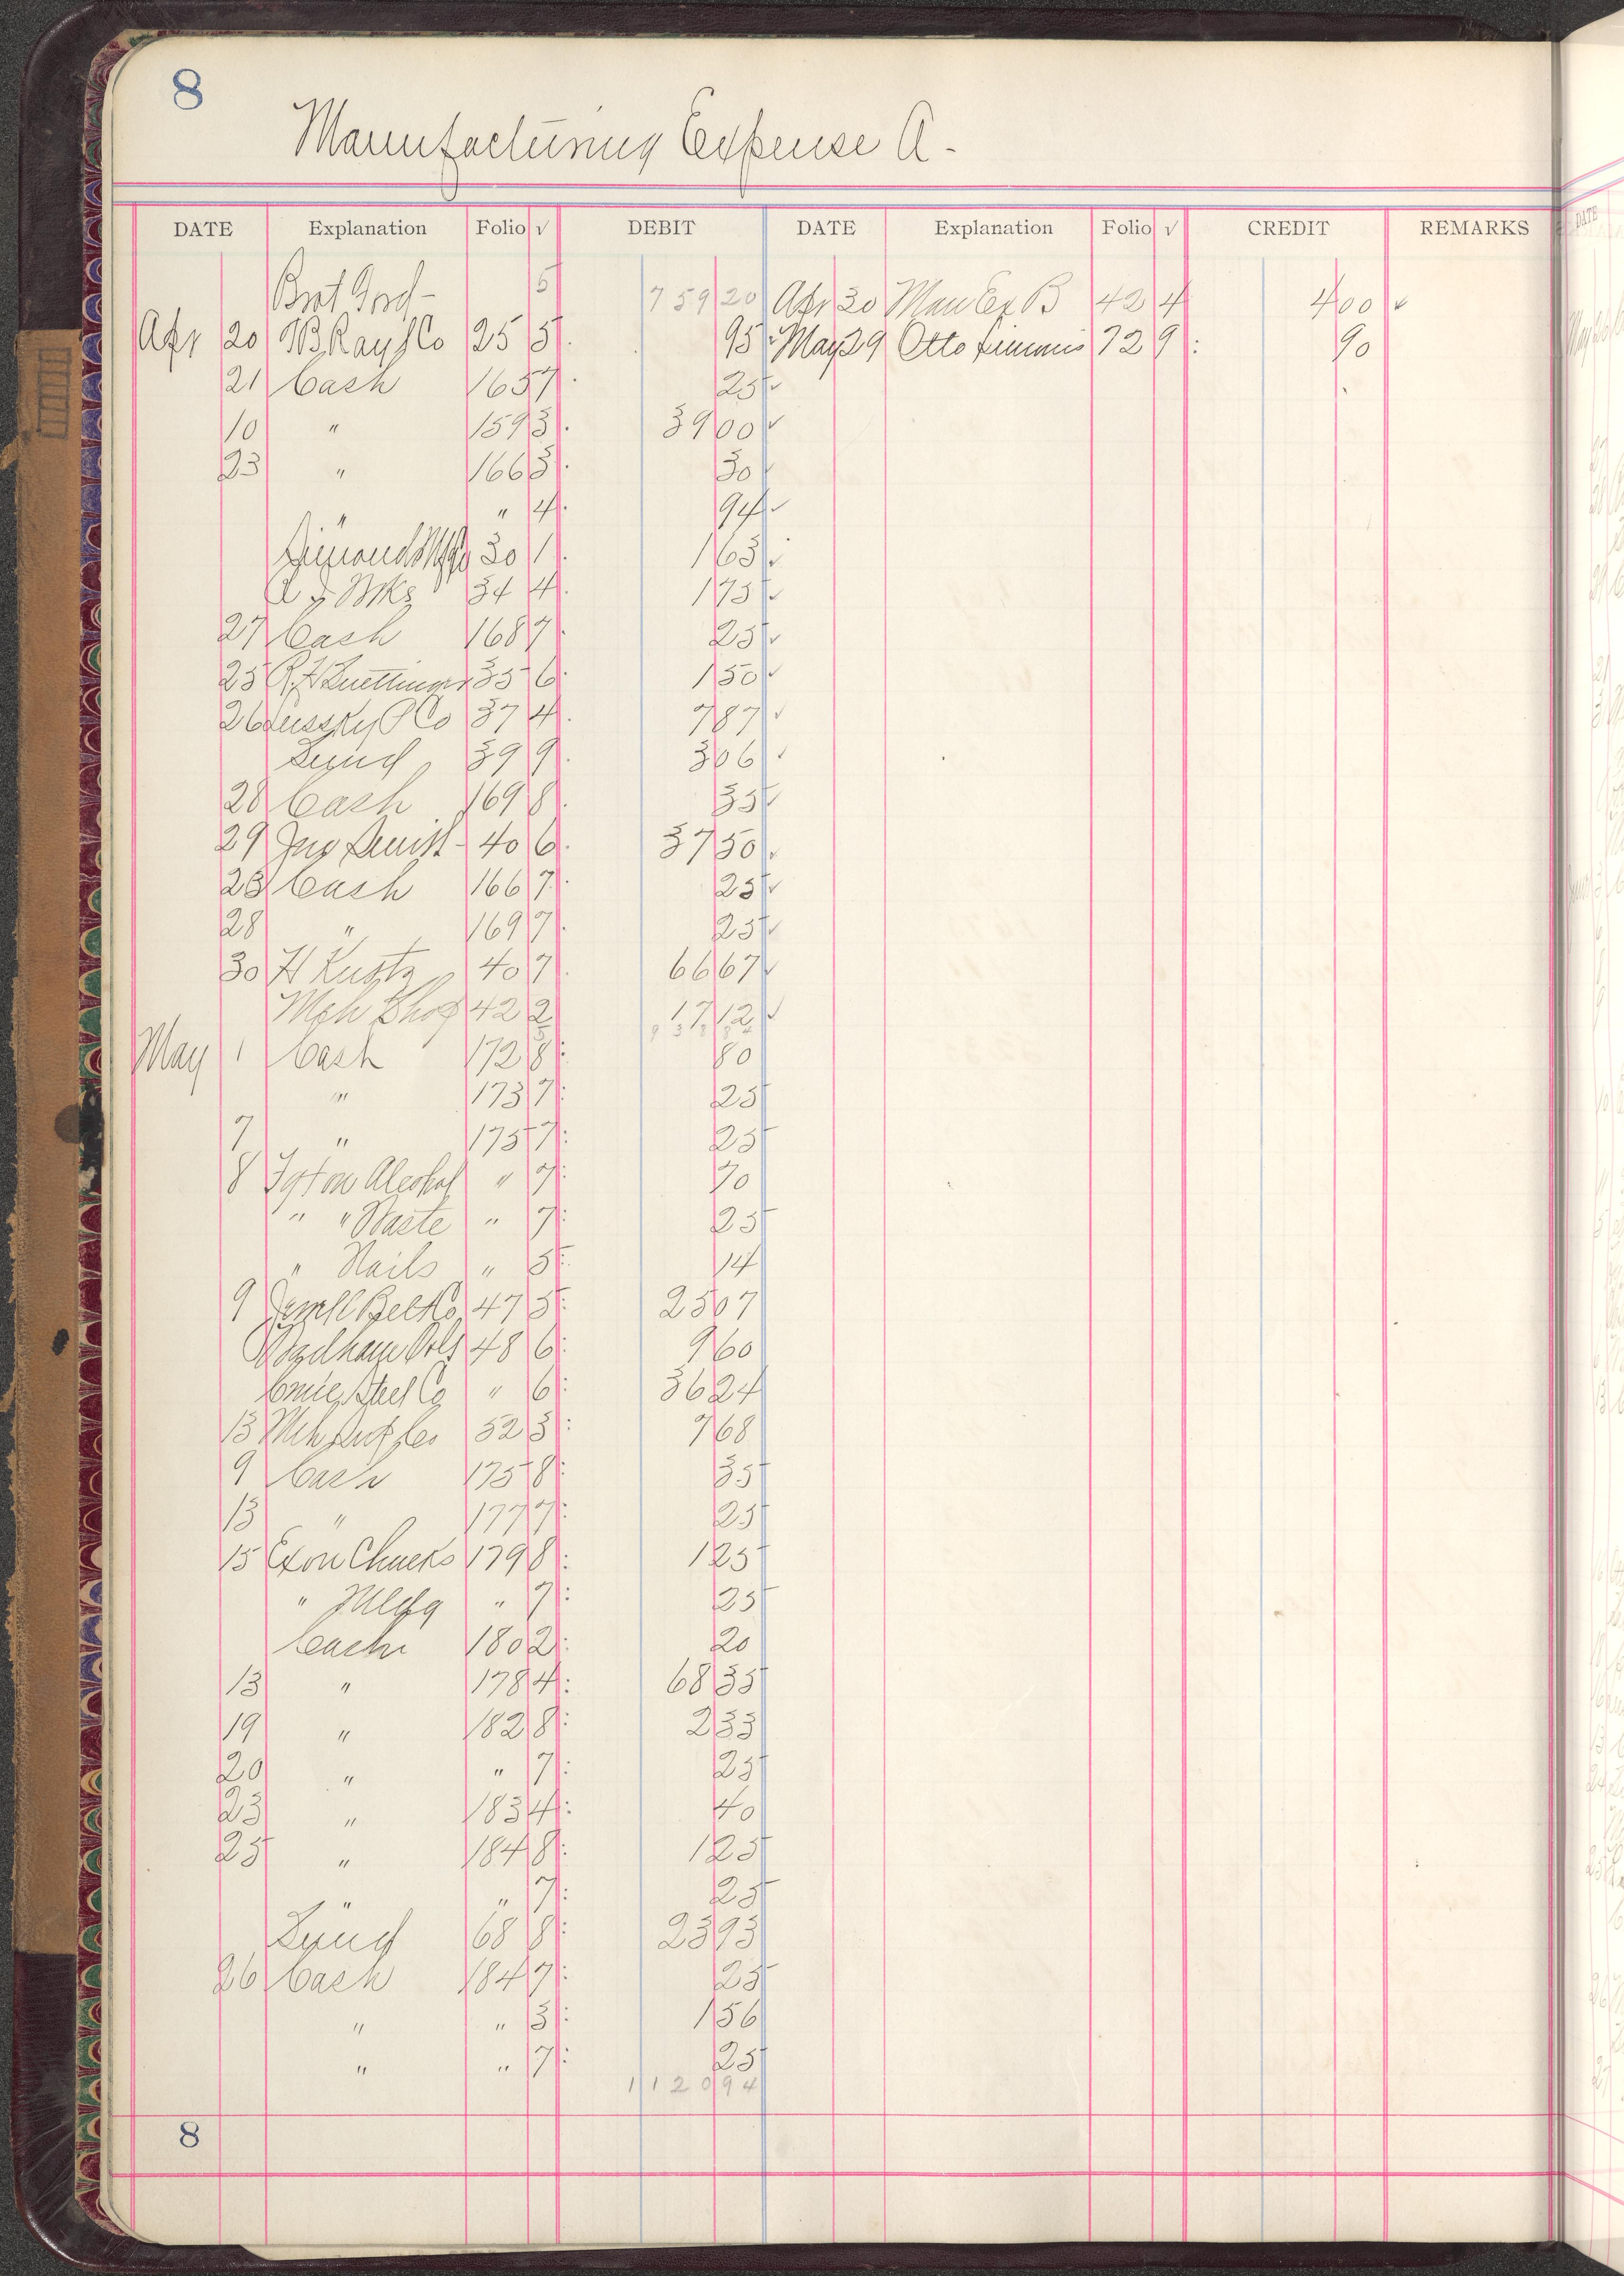 8
Manufacturing Expense A -
DATE Explanation Folio √ DEBIT DATE Explanation Folio √ CREDIT REMARKS
Brot Ford - 5 759 20 Apr 30 Man Ex B 42 4 4 00 ✓
Apr 20 Ray & Co 25 5 95 ✓ May 29 Otto 72 9 90
21 Cash 165 7 25 ✓
10 " 159 3 39 00 ✓
23 " 166 3 30 ✓
" " 4 94 ✓
Simonds Mfg Co 30 1 1 63 ✓
34 4 1 75 ✓
27 Cash 168 7 25 ✓
25 35 6 1 50 ✓
26 Co 37 4 7 87 ✓
Lund 39 9 3 06 ✓
28 Cash 169 8 35 ✓
29 Jno 40 6 37 50 ✓
23 Cash 166 7 25 ✓
28 " 169 7 25 ✓
30 H 40 7 66 67 ✓
Mch Shop 42 2 17 12 ✓
May 1 Cash 172 8 80
" 173 7 25
7 " 175 7 25
8 Fgt on Alcohol " 7 70
" " Waste " 7 25
" Nails " 5 14
9 Jewell Belt Co 47 5 25 07
Wadham Oil 48 6 9 60
Steel Co " 6 36 24
13 Mch 52 3 7 68
9 Cash 175 8 35
13 " 177 7 25
15 Ex on Chucks 179 8 1 25
" " 7 25
Cash 180 2 20
13 " 178 4 68 35
19 " 182 8 2 33
20 " " 7 25
23 " 183 4 40
25 " 184 8 1 25
" " 7 25
Lund 68 8 23 93
26 Cash 184 7 25
" " 3 1 56
" " 7 25
1120 94
8